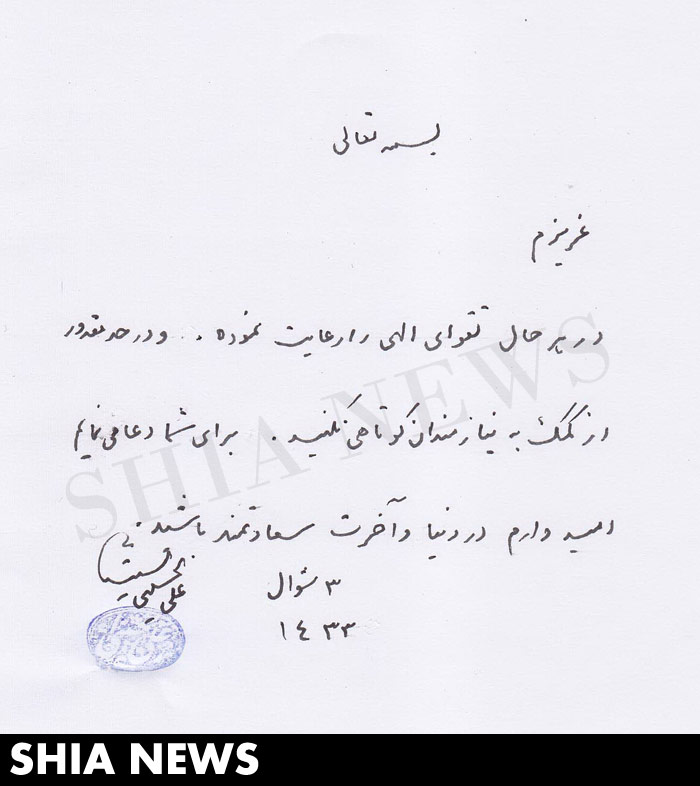 بسمه تعالی
عزیزم
در هر حال تقوای الهی را رعایت نموده . و در حد مقدور
از کمک به نیازمندان کوتاهی نکنید . برای شما دعا می نمایم
امید وارم در دنیا و آخرت سعادتمند باشید .
علی الحسینی السیستانی
۳ شوال
۱٤۳۳
SHIA NEWS
SHIA NEWS